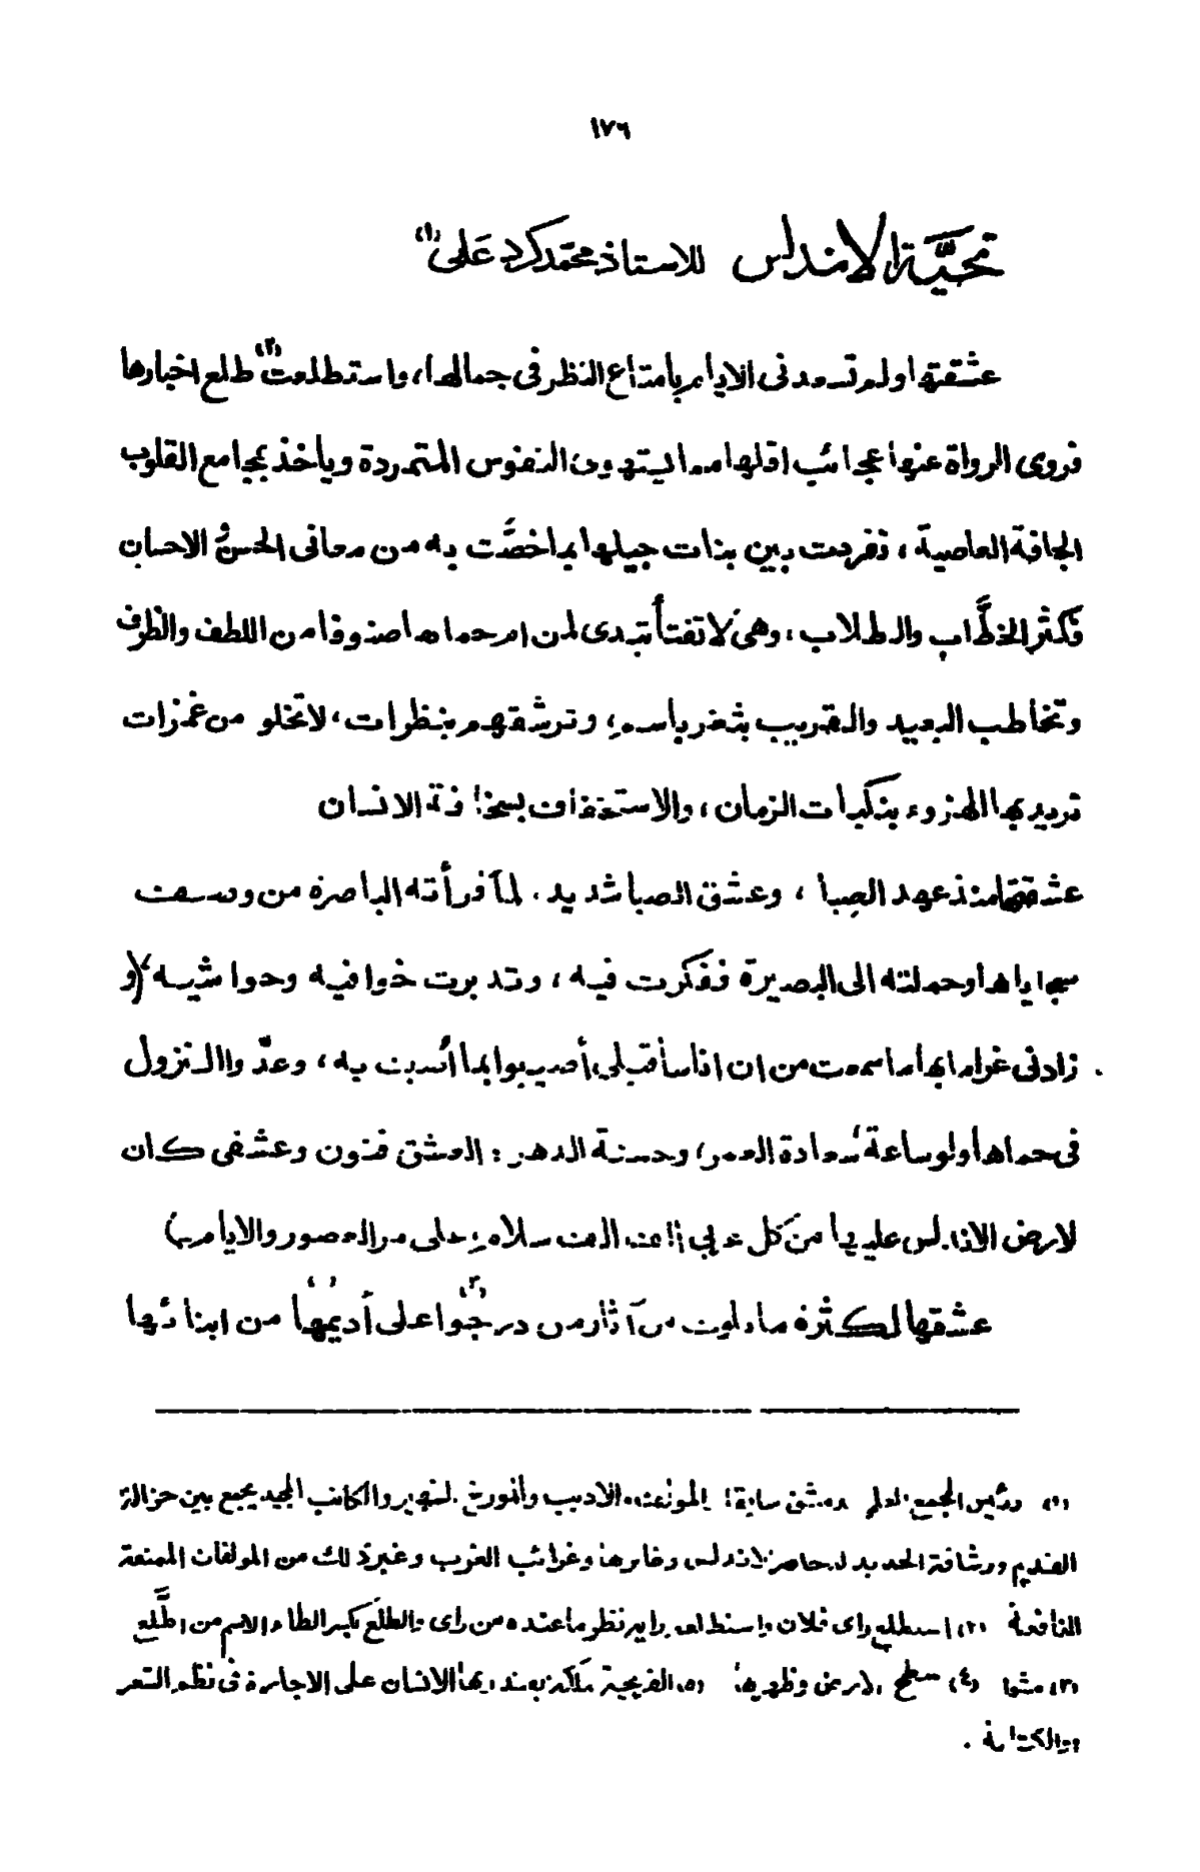 ١٧٦
تحيَّة الاندلس للاستاذ محمّد كرد عَلى (١)
عشقتها ولم تسعدنى الايام بامتاع النظر فى جمالها، واستطلعت (٢) طلع اخبارها
فروى الرواة عنها عجائب اقلها مما يستهوى النفوس المتمردة ويأخذ بمجامع القلوب
الجافة العاصية، تفردت بين بنات جيلها بما خصَّت به من معانى الحسن والاحسان
فكثر الخطَّاب والطلاب، وهى لا تفتأ تبدى لمن ام حماها صنوفا من اللطف والظرف
وتخاطب البعيد والقريب بثغر باسم، وترشقهم بنظرات، لا تخلو من غمزات
تريد بها الهزوء بنكبات الزمان، والاستخفاف بسخافة الانسان
عشقتها منذ عهد الصبا، وعشق الصبا شديد. لما قرأته الباصرة من وصف
سجاياها وحملته الى البصيرة ففكرت فيه، وتدبرت خوافيه وحواشيه، و
زادنى غراما بها ما سمعت من ان اناسا قبلى أصيبوا بما أُصبت به، وعدّوا النزول
فى حماها ولو ساعة سعادة العمر، وحسنة الدهر: العشق فنون وعشقى كان
لارض الاندلس عليها من كل قلبى الف الف سلام، على مر العصور والايام
عشقها لكثرة ما تلوت من آثار من درجوا (٣) على أديمها من ابنائها
(١) رئيس المجمع العلمى بدمشق سابقا، الاديب والمورخ الشهير والكاتب المجيد يجمع بين جزالة
القديم ورشاقة الحديد له حاضر الاندلس وغابرها وغرائب الغرب وغير ذلك من المولفات الممتعة
النافعة (٢) استطلع راى فلان واستطلعه رايه نظر ما عنده من راى والطلع بكسر الطاء الاسم من اطَّلع
(٣) مشوا (٤) سطح الارض وظهرها (٥) القريحة ملكة يقتدر بها الانسان على الاجادة فى نظم الشعر
والكتابة.